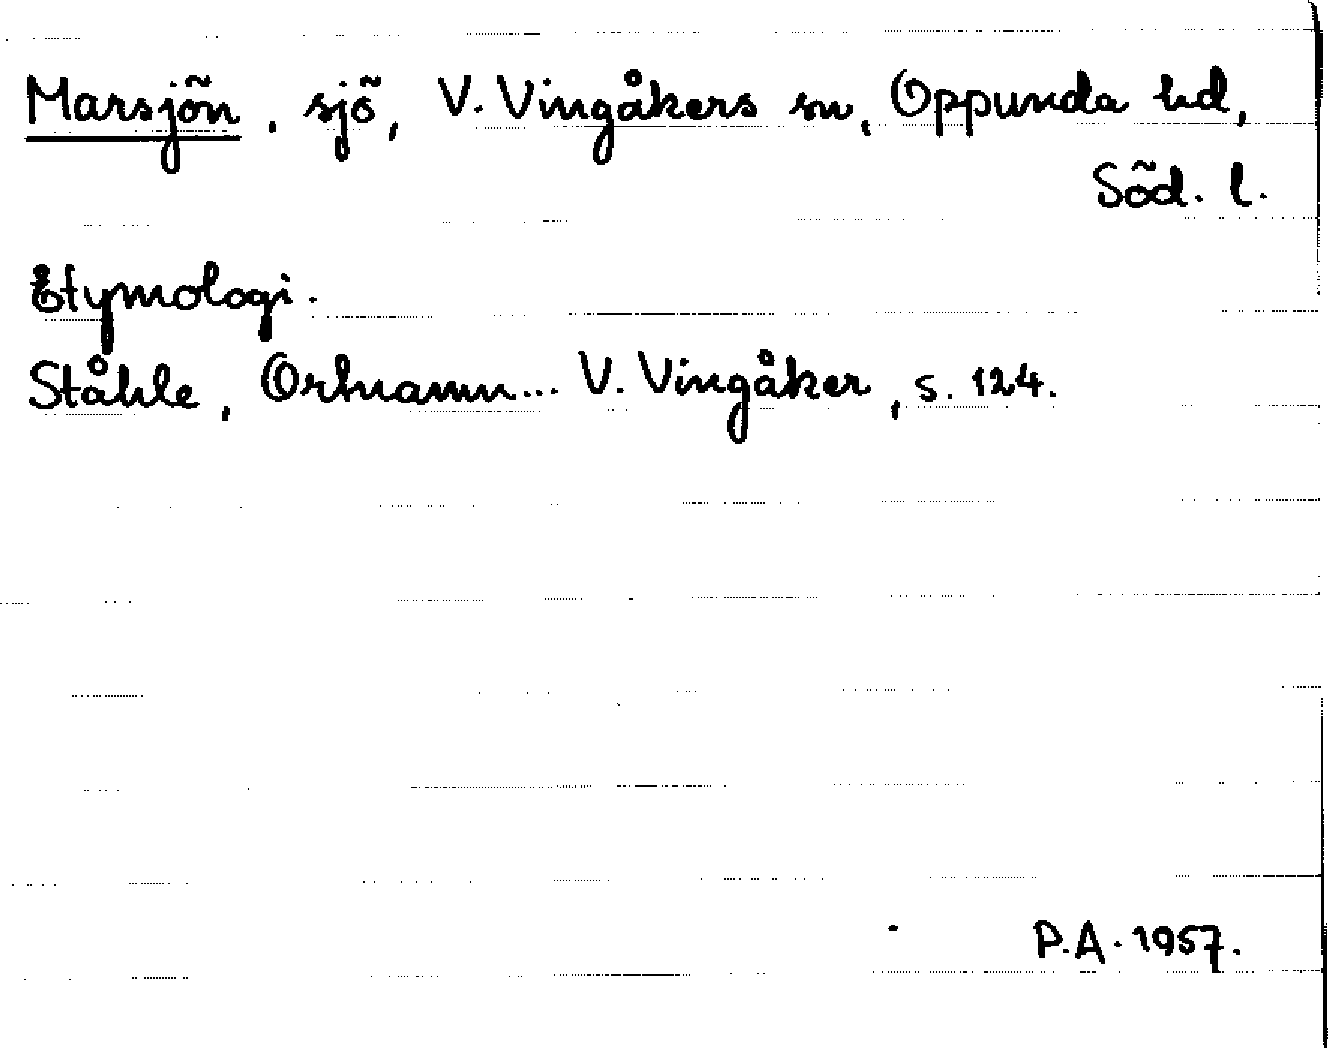 Marsjön, sjö, V. Vingåkers sn, Oppunda hd,
Söd. l.
Etymologi.
Ståhle, Ortnamn... V. Vingåker, s. 124.
P.A. 1957.